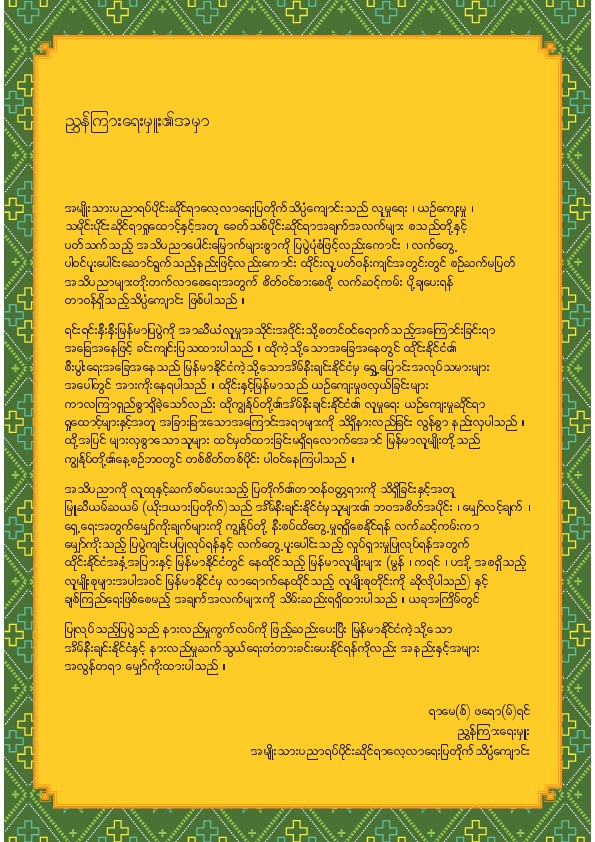 ညွှန်ကြားရေးမှူး၏အမှာ
အမျိုးသားပညာရပ်ပိုင်းဆိုင်ရာလေ့လာရေးပြတိုက်သိပ္ပံကျောင်းသည် လူမှုရေး ၊ ယဉ်ကျေးမှု ၊
သမိုင်းပိုင်းဆိုင်ရာရှုထောင့်နှင့်အတူ ခေတ်သစ်ပိုင်းဆိုင်ရာအချက်အလက်များ စသည်တို့နှင့်
ပတ်သက်သည့် အသိပညာပေါင်းမြောက်များစွာကို ပြပွဲပုံစံဖြင့်လည်းကောင်း ၊ လက်တွေ့
ပါဝင်ပူးပေါင်းဆောင်ရွက်သည့်နည်းဖြင့်လည်းကောင်း ထိုင်းလူ့ပတ်ဝန်းကျင်အတွင်းတွင် စဉ်ဆက်မပြတ်
အသိပညာများတိုးတက်လာစေရေးအတွက် စိတ်ဝင်စားစေဖို့ လက်ဆင့်ကမ်း ပို့ချပေးရန်
တာဝန်ရှိသည့်သိပ္ပံကျောင်း ဖြစ်ပါသည် ။
ရင်းရင်းနှီးနှီးမြန်မာပြပွဲကို အာဆီယံလူမှုအသိုင်းအဝိုင်းသို့စတင်ဝင်ရောက်သည့်အကြောင်းခြင်းရာ
အခြေအနေဖြင့် ခင်းကျင်းပြသထားပါသည် ။ ထိုကဲ့သို့သောအခြေအနေတွင် ထိုင်းနိုင်ငံ၏
စီးပွါးရေးအခြေအနေသည် မြန်မာနိုင်ငံကဲ့သို့သောအိမ်နီးချင်းနိုင်ငံမှ ရွှေ့ပြောင်းအလုပ်သမားများ
အပေါ်တွင် အားကိုးနေရပါသည် ။ ထိုင်းနှင့်မြန်မာသည် ယဉ်ကျေးမှုဖလှယ်ခြင်းများ
ကာလကြာရှည်စွာရှိခဲ့သော်လည်း ထိုကျွန်ုပ်တို့၏အိမ်နီးချင်းနိုင်ငံ၏ လူမှုရေး ယဉ်ကျေးမှုဆိုင်ရာ
ရှုထောင့်များနှင့်အတူ အခြားခြားသောအကြောင်းအရာများကို သိရှိနားလည်ခြင်း လွန်စွာ နည်းလှပါသည် ။
ထို့အပြင် များလှစွာသောသူများ ထင်မှတ်ထားခြင်းမရှိရလောက်အောင် မြန်မာလူမျိုးတို့သည်
ကျွန်ုပ်တို့၏နေ့စဉ်ဘဝတွင် တစ်စိတ်တစ်ပိုင်း ပါဝင်နေကြပါသည် ။
အသိပညာကို လူထုနှင့်ဆက်စပ်ပေးသည့် ပြတိုက်၏တာဝန်ဝတ္တရားကို သိရှိခြင်းနှင့်အတူ
မြူဆီယမ်ဆယမ် (ယိုးဒယားပြတိုက်) သည် အိမ်နီးချင်းနိုင်ငံမှသူများ၏ ဘဝအစိတ်အပိုင်း ၊ မျှော်လင့်ချက် ၊
ရှေ့ရေးအတွက်မျှော်ကိုးချက်များကို ကျွန်ုပ်တို့ နီးစပ်ထိတွေ့မှုရရှိစေနိုင်ရန် လက်ဆင့်ကမ်းကာ
မျှော်ကိုးသည့် ပြပွဲကျင်းပပြုလုပ်ရန်နှင့် လက်တွေ့ပူးပေါင်းသည့် လှုပ်ရှားမှုပြုလုပ်ရန်အတွက်
ထိုင်းနိုင်ငံအနှံ့အပြားနှင့် မြန်မာနိုင်ငံတွင် နေထိုင်သည့် မြန်မာလူမျိုးများ (မွန် ၊ ကရင် ၊ ပအို့ အစရှိသည့်
လူမျိုးစုများအပါအဝင် မြန်မာနိုင်ငံမှ လာရောက်နေထိုင်သည့် လူမျိုးစုတိုင်းကို ဆိုလိုပါသည်) နှင့်
ချစ်ကြည်ရေးဖြစ်စေမည့် အချက်အလက်များကို သိမ်းဆည်းရရှိထားပါသည် ။ ယခုအကြိမ်တွင်
ပြုလုပ်သည့်ပြပွဲသည် နားလည်မှုကွက်လပ်ကို ဖြည့်ဆည်းပေးပြီး မြန်မာနိုင်ငံကဲ့သို့သော
အိမ်နီးချင်းနိုင်ငံနှင့် နားလည်မှုဆက်သွယ်ရေးတံတားခင်းပေးနိုင်ရန်ကိုလည်း အနည်းနှင့်အများ
အလွန်တရာ မျှော်ကိုးထားပါသည် ။
ရာမေ(စ်) ဖရော(မ်)ရင်
ညွှန်ကြားရေးမှူး
အမျိုးသားပညာရပ်ပိုင်းဆိုင်ရာလေ့လာရေးပြတိုက်သိပ္ပံကျောင်း